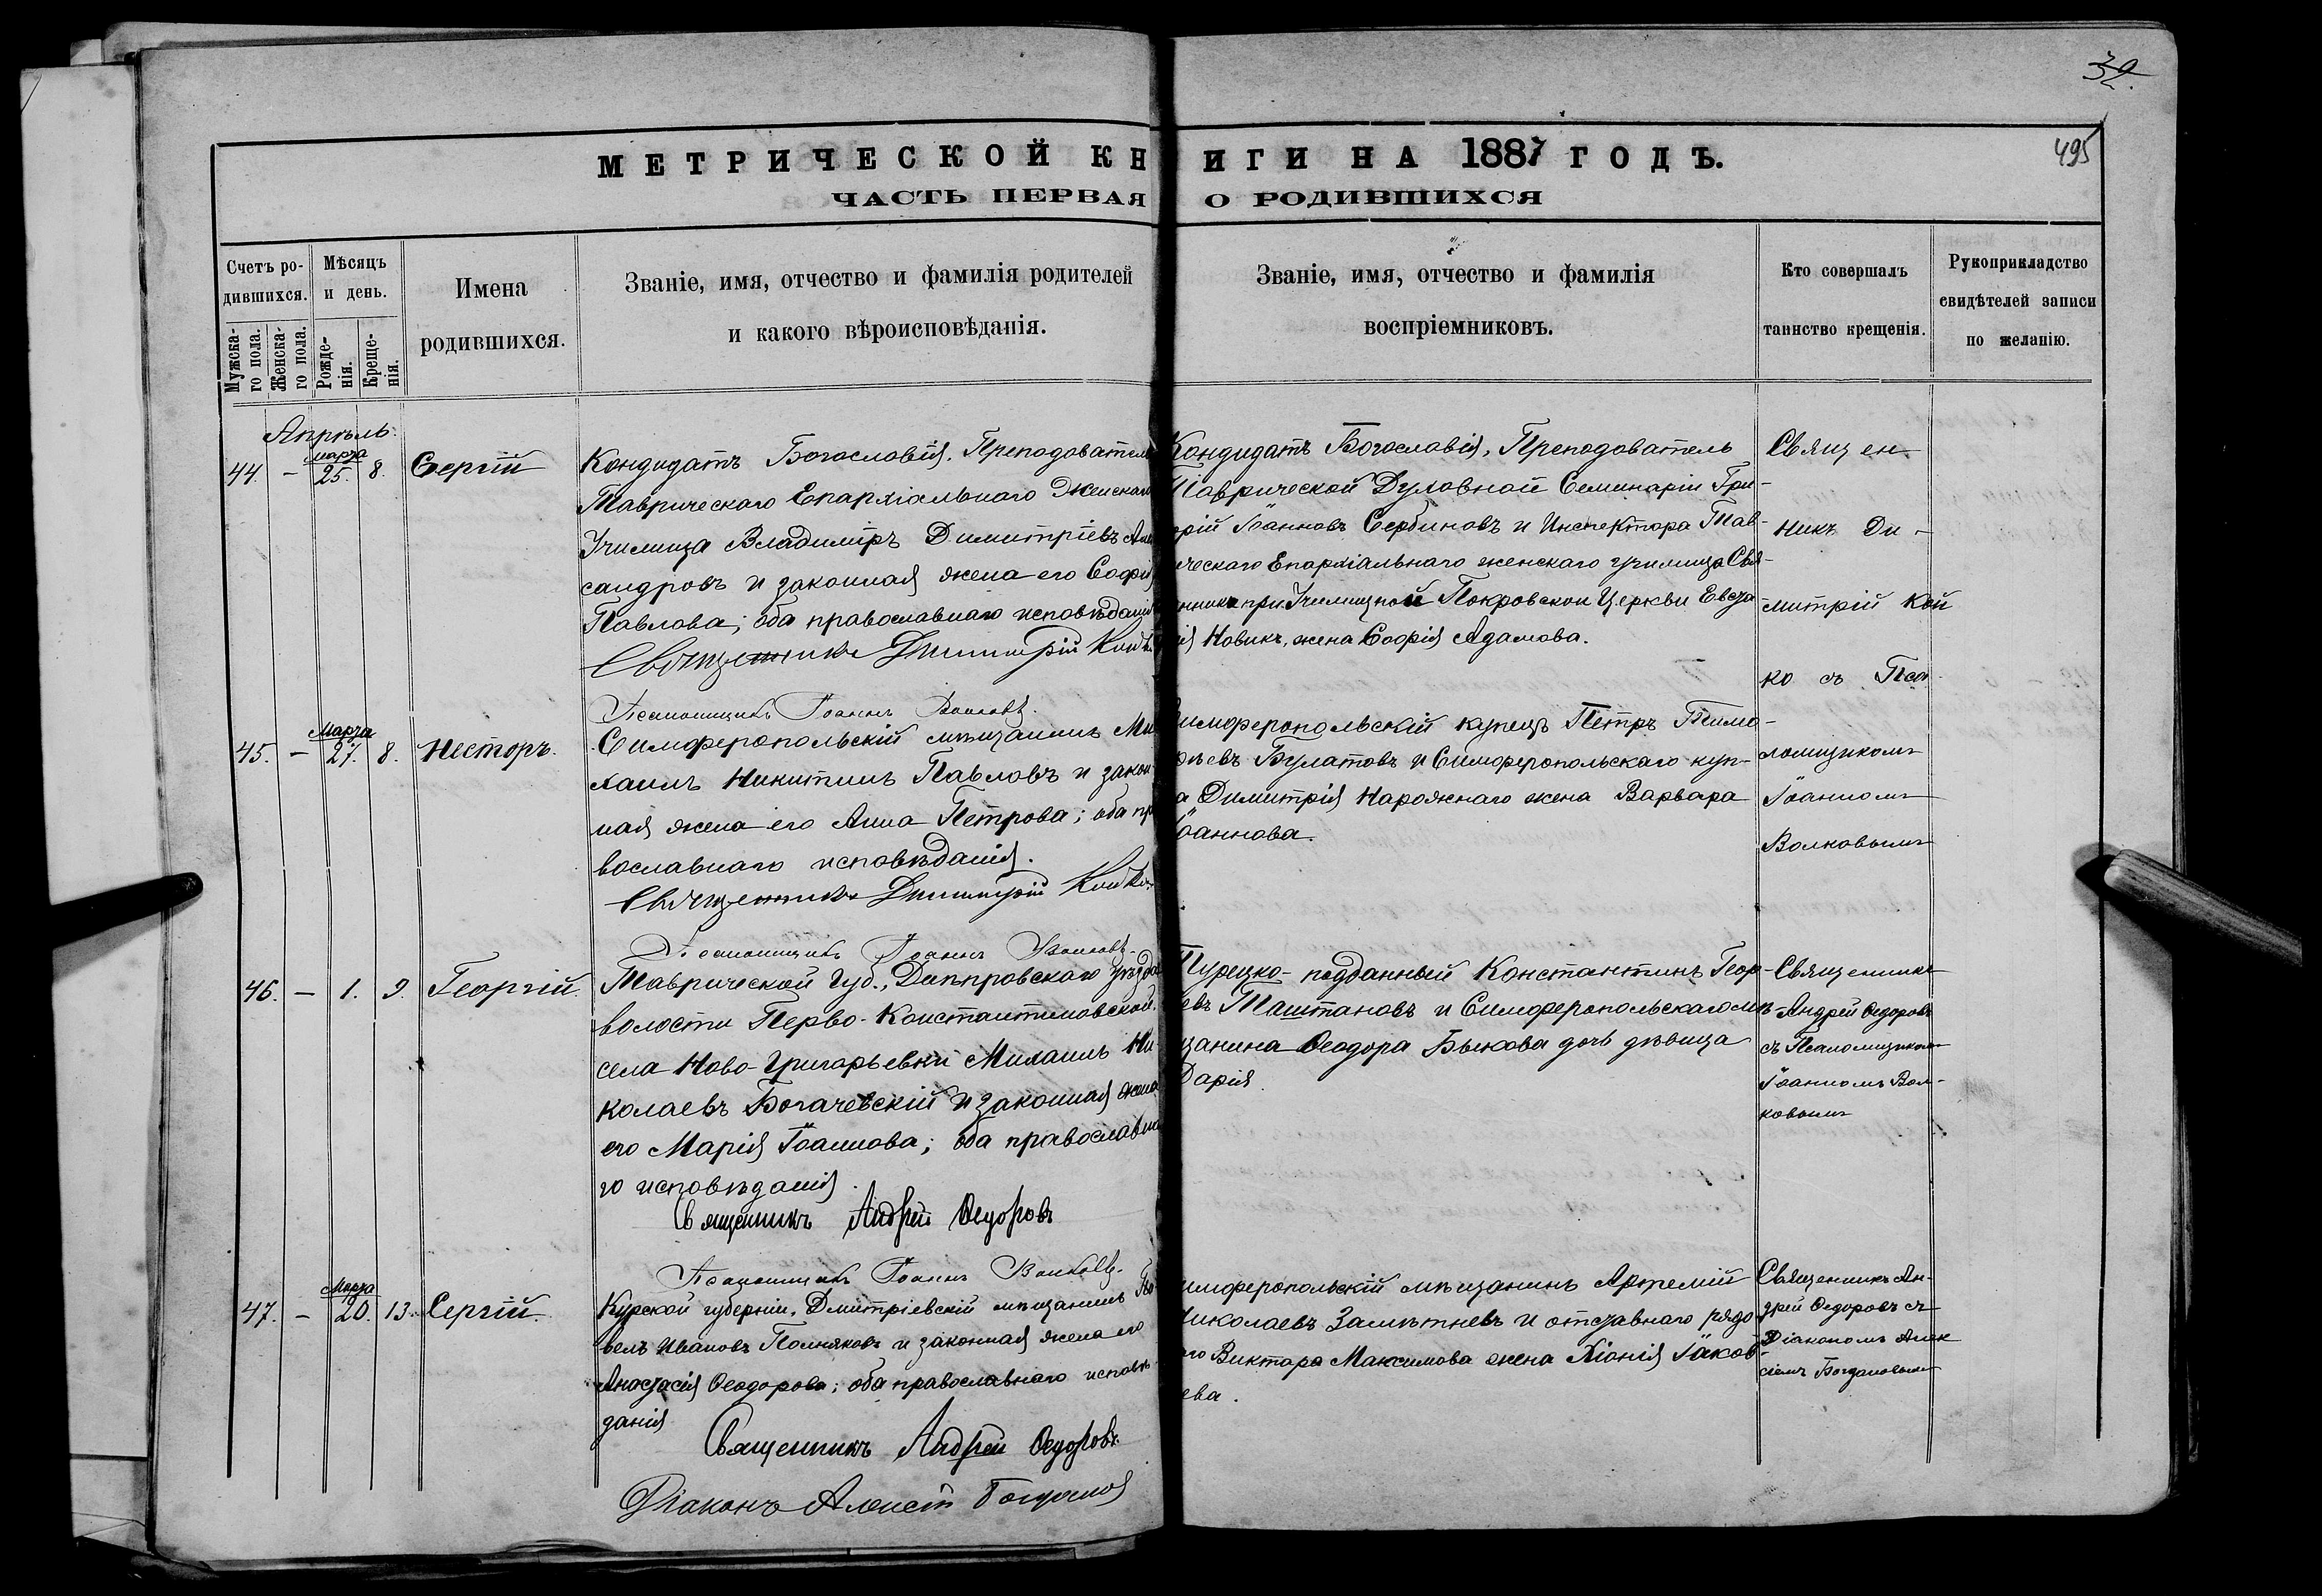 32.
495
МЕТРИЧЕСКОЙ КНИГИ НА 1887 ГОДЪ.
ЧАСТЬ ПЕРВАЯ О РОДИВШИХСЯ
Счетъ ро-
дившихся.
Мужска-
го пола.
Женска-
го пола.
Мѣсяцъ
и день.
Рожде-
нія.
Креще-
нія.
Имена
родившихся.
Званіе, имя, отчество и фамилія родителей
и какого вѣроисповѣданія.
Званіе, имя, отчество и фамилія
воспріемниковъ.
Кто совершалъ
таинство крещенія.
Рукоприкладство
свидѣтелей записи
по желанію.
Апрѣль.
44. – марта 25. 8. Сергій
Кондидатъ Богословія, Преподователь
Таврическаго Епархіальнаго Женскаго
Училища Владиміръ Димитріевъ Але
сандровъ и законная жена его Софія
Павлова; оба православнаго исповѣданія
Священникъ Димитрій Койко
Псаломщикъ Іоаннъ Волковъ.
Кондидатъ Богословія, Преподователь
Таврической Духовной Семинаріи Гри-
рій Іоанновъ Сербиновъ и Инспектора Тав-
ческаго Епархіальнаго женскаго училища Свя-
нника при Училищной Покровской Церкви Евста
ія Новикъ, жена Софія Адамова.
Священ
никъ Ди-
митрій Кой
ко съ Пса
ломщикомъ
Іоанномъ
Волковымъ
45. – Марта 27. 8. Несторъ.
Симферопольскій мѣщанинъ Ми
хаилъ Никитинъ Павловъ и закон
ная жена его Анна Петрова; оба пр
вославнаго исповѣданія.
Священникъ Димитрій Койко
Псаломщикъ Іоаннъ Волковъ.
имферопольскій купецъ Петръ Тимо-
ѣевъ Булатовъ и Симферопольскаго куп-
а Димитрія Нарожнаго жена Варвара
Іоаннова.
46. – 1. 9. Георгій.
Таврической Губ., Днѣпровскаго уѣзда
волости Перво-Константиновской.
села Ново-Григорьевки Михаилъ Ни-
колаевъ Богачевскій и законная жена
его Марія Іоаннова; оба православна
го исповѣданія.
Священникъ Андрей Ѳедоровъ
Псаломщикъ Іоаннъ Волковъ.
Турецко-подданный Константинъ Геор-
евъ Таштановъ и Симферопольскаго мѣ
щанина Ѳеодора Быкова дочь дѣвица
Дарія.
Священникъ
Андрей Ѳедоровъ
съ Псаломщикомъ
Іоанномъ Вол-
ковымъ
47. – Марта 20. 13. Сергій.
Курской губерніи, Дмитріевскій мѣщанинъ Па
велъ Ивановъ Полняковъ и законная жена его
Анастасія Ѳеодорова; оба православнаго исповѣ-
данія
Священникъ Андрей Ѳедоровъ.
Діаконъ Алексій Богдановъ
имферопольскій мѣщанинъ Артемій
Николаевъ Замѣтневъ и отставнаго рядо
го Виктора Максимова жена Хіонія Іаков-
ева.
Священникъ Ан-
дрей Ѳедоровъ съ
Діакономъ Алек
сіемъ Богдановымъ